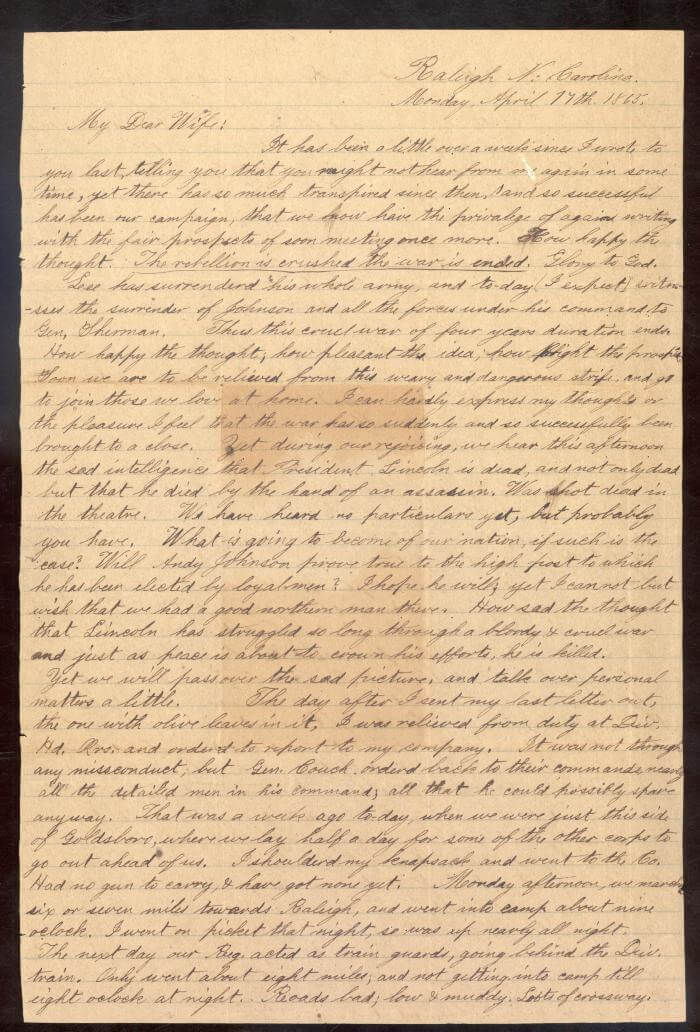 Raleigh N. Carolina.
Monday, April 17th. 1865.
My Dear Wife:
It has been a little over a week since I wrote to
you last, telling you that you might not hear from me again in some
time, yet there has so much transpired since then, and so successful
has been our campaign, that we now have the privalege of again writing
with the fair prospects of soon meeting once more. How happy the
thought. The rebellion is crushed the war is ended. Glory to God.
Lee has surrenderd his whole army, and to-day I expect, witne-
-sses the surrender of Johnson and all the forces under his command, to
Gen. Sherman. Thus this cruel war of four years duration ends.
How happy the thought, how pleasant the idea, how bright the prospect
Soon we are to be relieved from this weary and dangerous strife, and go
to join those we love at home. I can hardly express my thoughts or
the pleasure I feel that the war has so suddenly and so successfully been
brought to a close. Yet during our rejoicing, we hear this afternoon
the sad intelligence that President Lincoln is dead, and not only dead
but that he died by the hand of an assassin. Was shot dead in
the theatre. We have heard no particulars yet, but probably
you have. What is going to become of our nation, if such is the
case? Will Andy Johnson prove true to the high post to which
he has been elected by loyal men? I hope he will, yet I can not but
wish that we had a good northern man there. How sad the thought
that Lincoln has struggled so long through a bloody & cruel war
and just as peace is about to crown his efforts, he is killed.
Yet we will pass over the sad picture, and talk over personal
matters a little. The day after I sent my last letter out,
the one with olive leaves in it, I was relieved from duty at Div.
Hd. Qrs. and orderd to report to my company. It was not through
any missconduct, but Gen. Couch orderd back to their commands, nearly
all the detailed men in his command; all that he could possibly spare
anyway. That was a week ago to-day, when we were just this side
of Goldsboro, where we lay half a day for some of the other corps to
go out ahead of us. I shoulderd my knapsack and went to the Co.
Had no gun to carry, & have got none yet. Monday afternoon, we march
six or seven miles towards Raleigh, and went into camp about nine
oclock. I went on picket that night, so was up nearly all night.
The next day our Reg. acted as train guards, going behind the Div.
train. Only went about eight miles, and not getting into camp till
eight oclock at night. Roads bad, low & muddy. Lots of crossway.